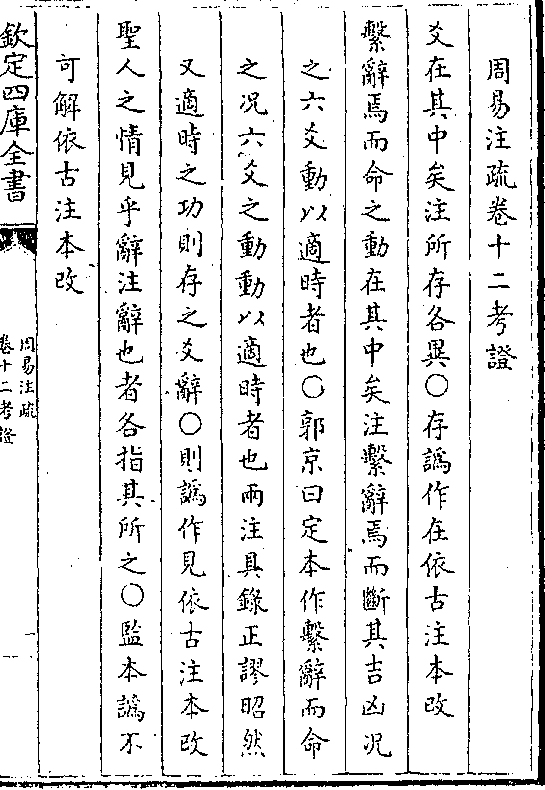 周易注疏卷十二考證
爻在其中矣注所存各異○存譌作在依古注本改
繫辭焉而命之動在其中矣注繫辭焉而斷其吉凶况
之六爻動以適時者也○郭京曰定本作繫辭而命
之况六爻之動動以適時者也兩注具錄正謬昭然
又適時之功則存之爻辭○則譌作見依古注本改
聖人之情見乎辭注辭也者各指其所之○監本譌不
可解依古注本改
欽定四庫全書
周易注疏
卷十二考證
一